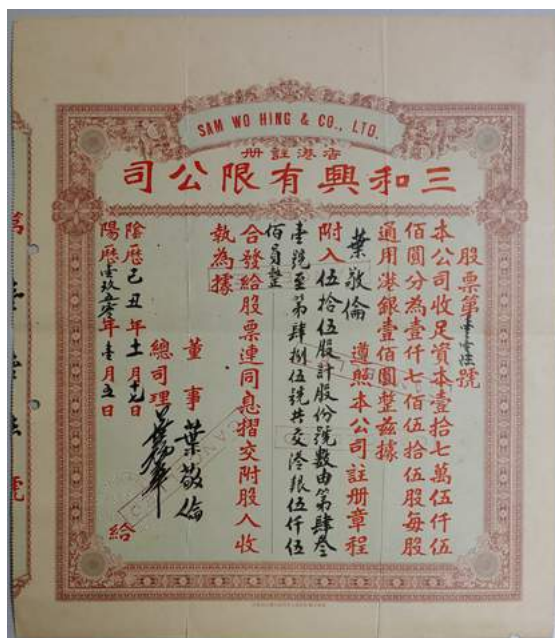 SAM WO HING & CO., LTD.
册註港香
司公限有興和三
股票第壹壹伍號
本公司收足資本壹拾七萬伍仟伍
佰圓分為壹仟七佰伍拾伍股每股
通用港銀壹佰圓整茲據
葉敬倫 遵照本公司註册章程
附入伍拾伍股計股份號數由第肆叁
壹號至第肆捌伍號共交港銀伍仟伍
佰員整
合發給股票連同息摺交附股人收
執為據
董事 葉敬倫
總司理
陰歷己丑年十一月十七日
陽歷壹玖五零年壹月五日
給